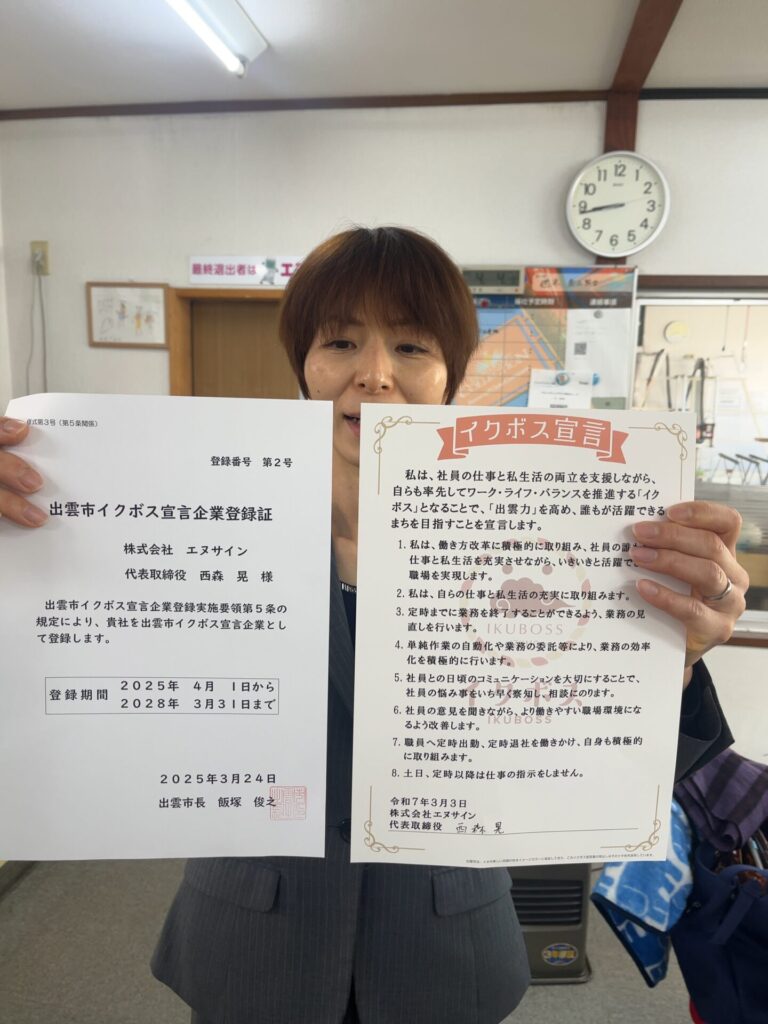 最終退出者は
様式第3号（第5条関係）
登録番号 第2号
出雲市イクボス宣言企業登録証
株式会社 エヌサイン
代表取締役 西森 晃 様
出雲市イクボス宣言企業登録実施要領第5条の
規定により、貴社を出雲市イクボス宣言企業とし
て登録します。
登録期間 2025年 4月 1日から
2028年 3月31日まで
2025年3月24日
出雲市長 飯塚 俊之
イクボス宣言
私は、社員の仕事と私生活の両立を支援しながら、
自らも率先してワーク・ライフ・バランスを推進する「イク
ボス」となることで、「出雲力」を高め、誰もが活躍できる
まちを目指すことを宣言します。
1. 私は、働き方改革に積極的に取り組み、社員の誰
仕事と私生活を充実させながら、いきいきと活躍でき
職場を実現します。
2. 私は、自らの仕事と私生活の充実に取り組みます。
3. 定時までに業務を終了することができるよう、業務の見
直しを行います。
4. 単純作業の自動化や業務の委託等により、業務の効率
化を積極的に行います。
5. 社員との日頃のコミュニケーションを大切にすることで、
社員の悩み事をいち早く察知し、相談にのります。
6. 社員の意見を聞きながら、より働きやすい職場環境にな
るよう改善します。
7. 職員へ定時出勤、定時退社を働きかけ、自身も積極的
に取り組みます。
8. 土日、定時以降は仕事の指示をしません。
IKUBOSS
イクボス
IKUBOSS
令和7年3月3日
株式会社エヌサイン
代表取締役 西森晃
12
1
2
3
4
5
6
7
8
9
10
11
帰社予定時刻
連絡事項